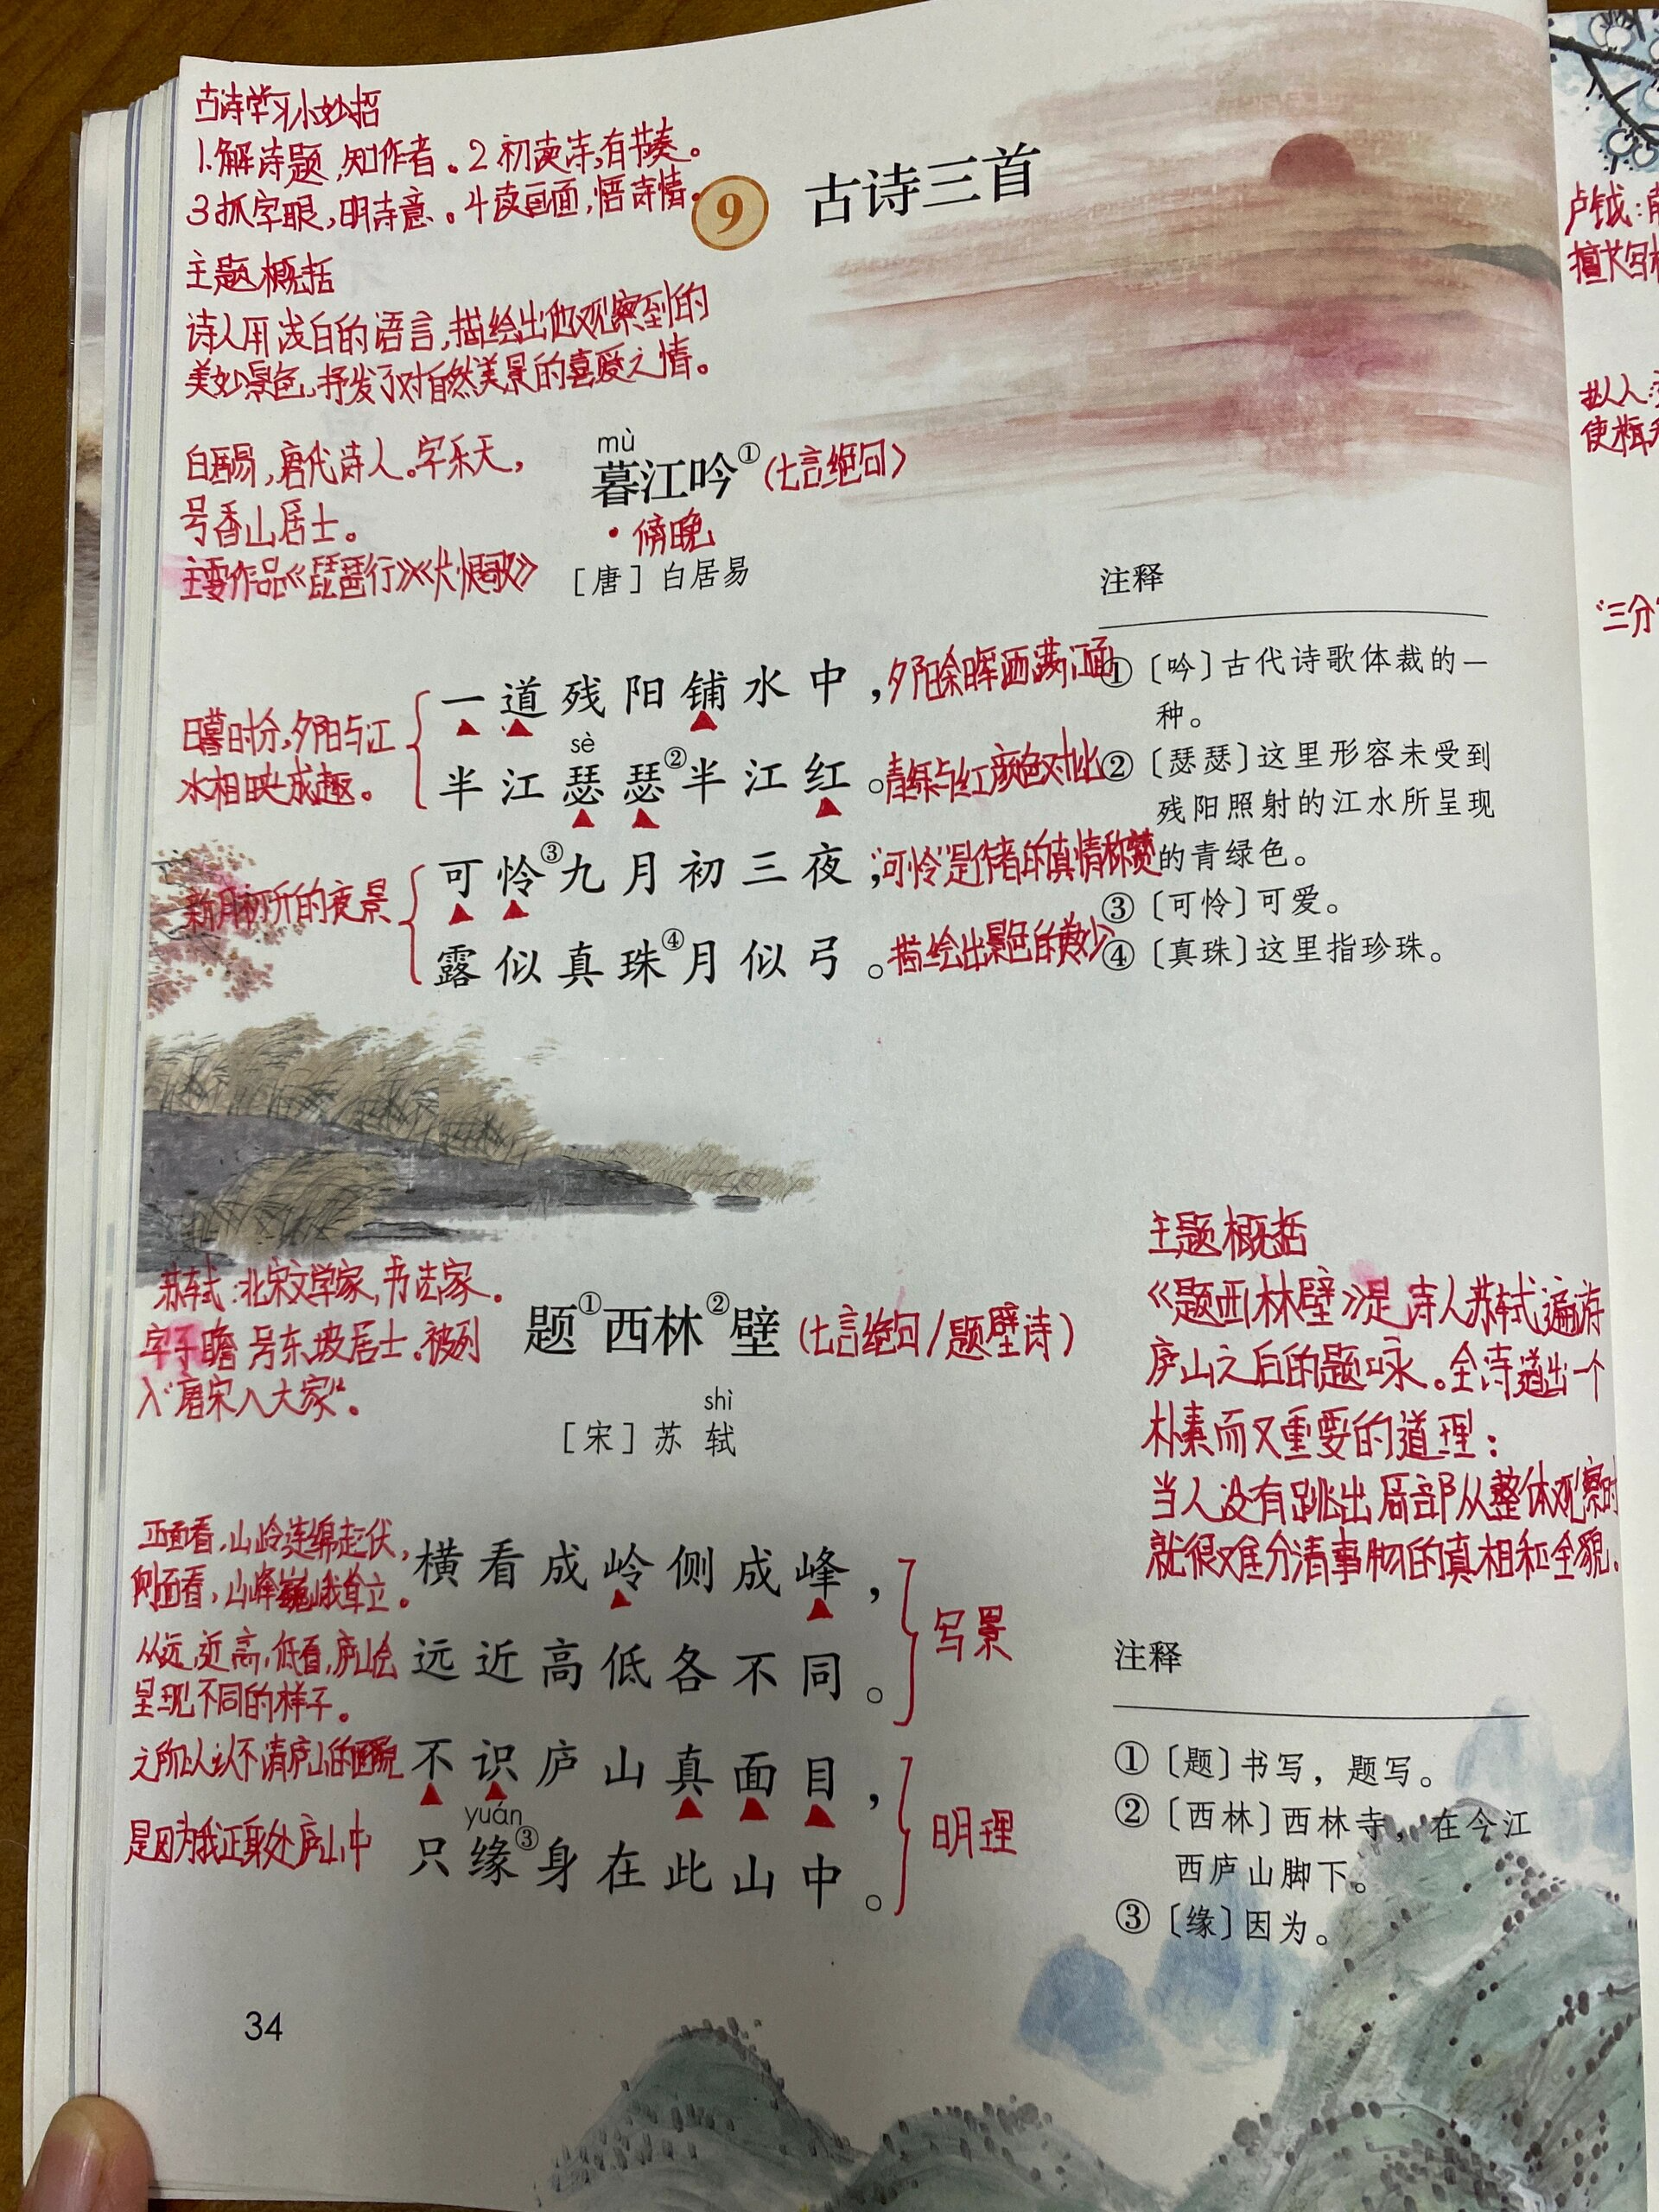 古诗学习小妙招
1.解诗题,知作者。2 初读诗,有节奏。
3 抓字眼,明诗意。4 读画面,悟诗情。
9 古诗三首
主题概括
诗人用浅白的语言,描绘出他观察到的
美妙景色,抒发了对自然美景的喜爱之情。
白居易,唐代诗人。字乐天,
号香山居士。
主要作品《琵琶行》《长恨歌》
mù
暮江吟①(七言绝句)
·傍晚
[唐]白居易
一道残阳铺水中,夕阳余晖洒满江面
sè
半江瑟瑟②半江红。青绿与红颜色对比
日暮时分,夕阳与江
水相映成趣。
可怜③九月初三夜,"可怜"是作者的真情称赞
露似真珠④月似弓。描绘出景色的美妙
新月初升的夜景
注释
①〔吟〕古代诗歌体裁的一
种。
②〔瑟瑟〕这里形容未受到
残阳照射的江水所呈现
的青绿色。
③〔可怜〕可爱。
④〔真珠〕这里指珍珠。
苏轼:北宋文学家,书法家。
字子瞻 号东坡居士。被列
入"唐宋八大家"。
题①西林②壁(七言绝句/题壁诗)
shì
[宋]苏轼
正面看,山岭连绵起伏,
侧面看,山峰巍峨耸立。
横看成岭侧成峰,
从远,近,高,低看,庐山会
呈现不同的样子。
远近高低各不同。
写景
之所以认不清庐山的面貌
不识庐山真面目,
yuán
是因为我正身处庐山中
只缘③身在此山中。
明理
主题概括
《题西林壁》是诗人苏轼遍游
庐山之后的题咏。全诗道出一个
朴素而又重要的道理:
当人没有跳出局部从整体观察时
就很难分清事物的真相和全貌。
注释
①〔题〕书写,题写。
②〔西林〕西林寺,在今江
西庐山脚下。
③〔缘〕因为。
34
卢钺:南
擅长写
使
"三分"